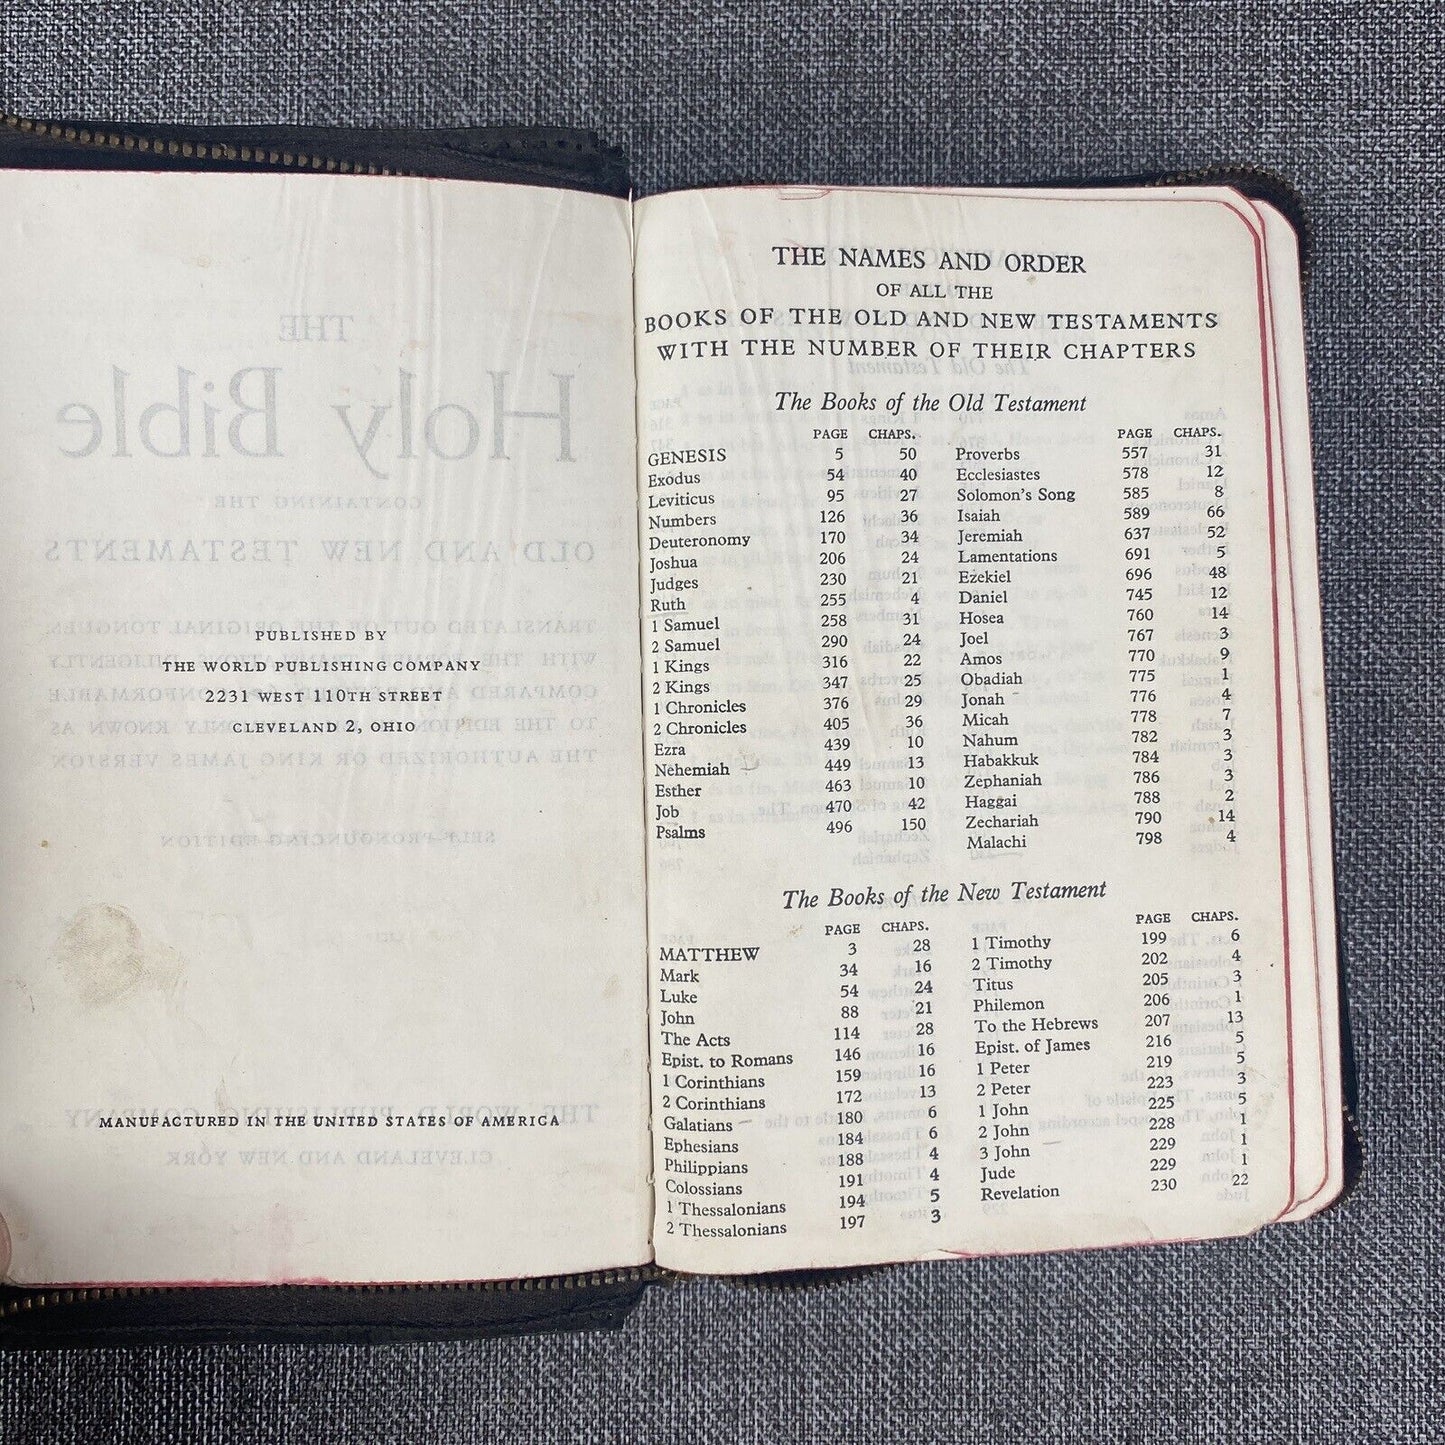 PUBLISHED BY
THE WORLD PUBLISHING COMPANY
2231 WEST 110TH STREET
CLEVELAND 2, OHIO
MANUFACTURED IN THE UNITED STATES OF AMERICA
THE NAMES AND ORDER
OF ALL THE
BOOKS OF THE OLD AND NEW TESTAMENTS
WITH THE NUMBER OF THEIR CHAPTERS
The Books of the Old Testament
PAGE CHAPS.
GENESIS 5 50
Exodus 54 40
Leviticus 95 27
Numbers 126 36
Deuteronomy 170 34
Joshua 206 24
Judges 230 21
Ruth 255 4
1 Samuel 258 31
2 Samuel 290 24
1 Kings 316 22
2 Kings 347 25
1 Chronicles 376 29
2 Chronicles 405 36
Ezra 439 10
Nehemiah 449 13
Esther 463 10
Job 470 42
Psalms 496 150
PAGE CHAPS.
Proverbs 557 31
Ecclesiastes 578 12
Solomon's Song 585 8
Isaiah 589 66
Jeremiah 637 52
Lamentations 691 5
Ezekiel 696 48
Daniel 745 12
Hosea 760 14
Joel 767 3
Amos 770 9
Obadiah 775 1
Jonah 776 4
Micah 778 7
Nahum 782 3
Habakkuk 784 3
Zephaniah 786 3
Haggai 788 2
Zechariah 790 14
Malachi 798 4
The Books of the New Testament
PAGE CHAPS.
MATTHEW 3 28
Mark 34 16
Luke 54 24
John 88 21
The Acts 114 28
Epist. to Romans 146 16
1 Corinthians 159 16
2 Corinthians 172 13
Galatians 180 6
Ephesians 184 6
Philippians 188 4
Colossians 191 4
1 Thessalonians 194 5
2 Thessalonians 197 3
PAGE CHAPS.
1 Timothy 199 6
2 Timothy 202 4
Titus 205 3
Philemon 206 1
To the Hebrews 207 13
Epist. of James 216 5
1 Peter 219 5
2 Peter 223 3
1 John 225 5
2 John 228 1
3 John 229 1
Jude 229 1
Revelation 230 22